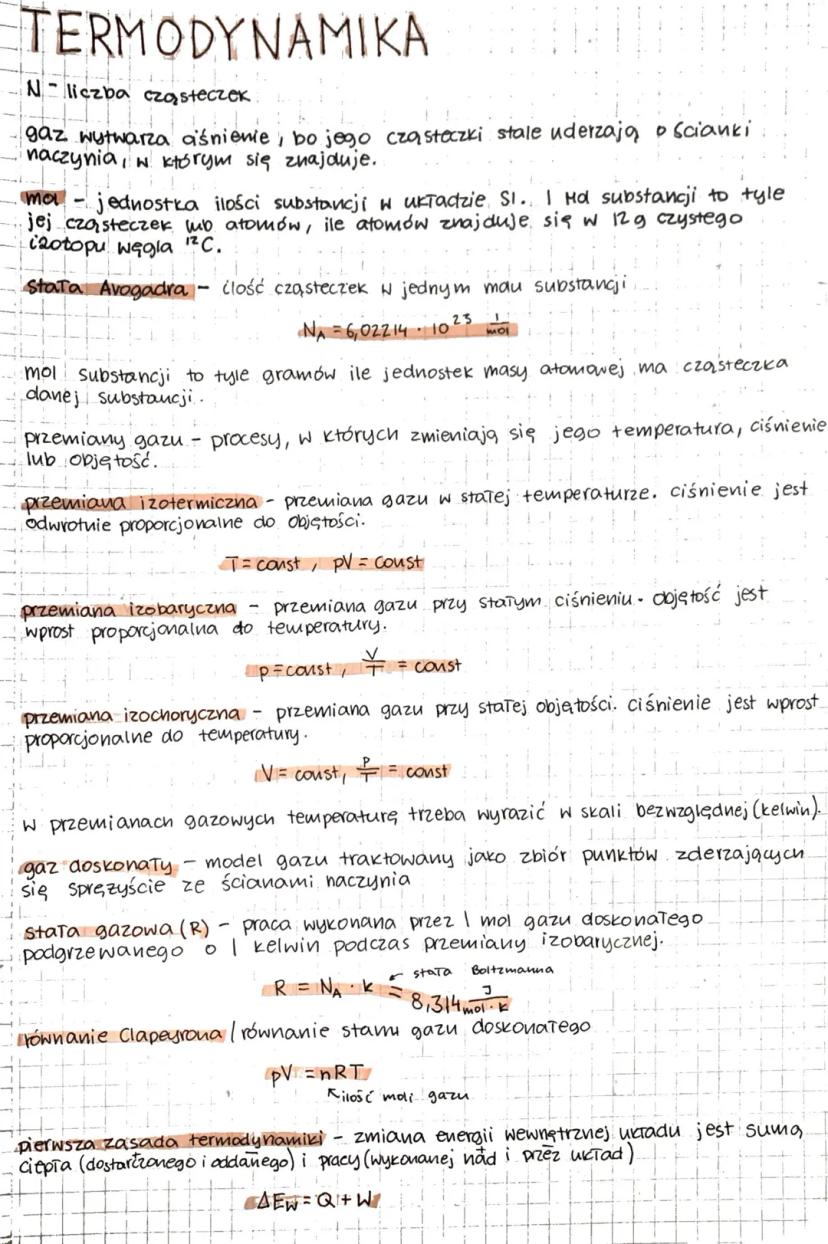 TERMODYNAMIKA
N - liczba cząsteczek
gaz wytwarza ciśnienie, bo jego cząsteczki stale uderzają o ścianki
naczynia, w którym się znajduje.
mol - jednostka ilości substancji w układzie SI. 1 mol substancji to tyle
jej cząsteczek lub atomów, ile atomów znajduje się w 12 g czystego
izotopu węgla ¹²C.
stała Avogadra - ilość cząsteczek w jednym molu substancji
N_A = 6,02214 · 10²³ 1/mol
mol substancji to tyle gramów ile jednostek masy atomowej ma cząsteczka
danej substancji.
przemiany gazu - procesy, w których zmieniają się jego temperatura, ciśnienie
lub objętość.
przemiana izotermiczna - przemiana gazu w stałej temperaturze. ciśnienie jest
odwrotnie proporcjonalne do objętości.
T = const, pV = const
przemiana izobaryczna - przemiana gazu przy stałym ciśnieniu. objętość jest
wprost proporcjonalna do temperatury.
p = const, V/T = const
przemiana izochoryczna - przemiana gazu przy stałej objętości. ciśnienie jest wprost
proporcjonalne do temperatury.
V = const, p/T = const
w przemianach gazowych temperaturę trzeba wyrazić w skali bezwzględnej (kelwin).
gaz doskonały - model gazu traktowany jako zbiór punktów zderzających
się sprężyście ze ścianami naczynia
stała gazowa (R) - praca wykonana przez 1 mol gazu doskonałego
podgrzewanego o 1 kelwin podczas przemiany izobarycznej.
← stała Boltzmanna
R = N_A · k = 8,314 J/mol·K
równanie Clapeyrona / równanie stanu gazu doskonałego
pV = nRT
↖ ilość moli gazu
pierwsza zasada termodynamiki - zmiana energii wewnętrznej układu jest sumą
ciepła (dostarczonego i oddanego) i pracy (wykonanej nad i przez układ)
ΔE_w = Q + W